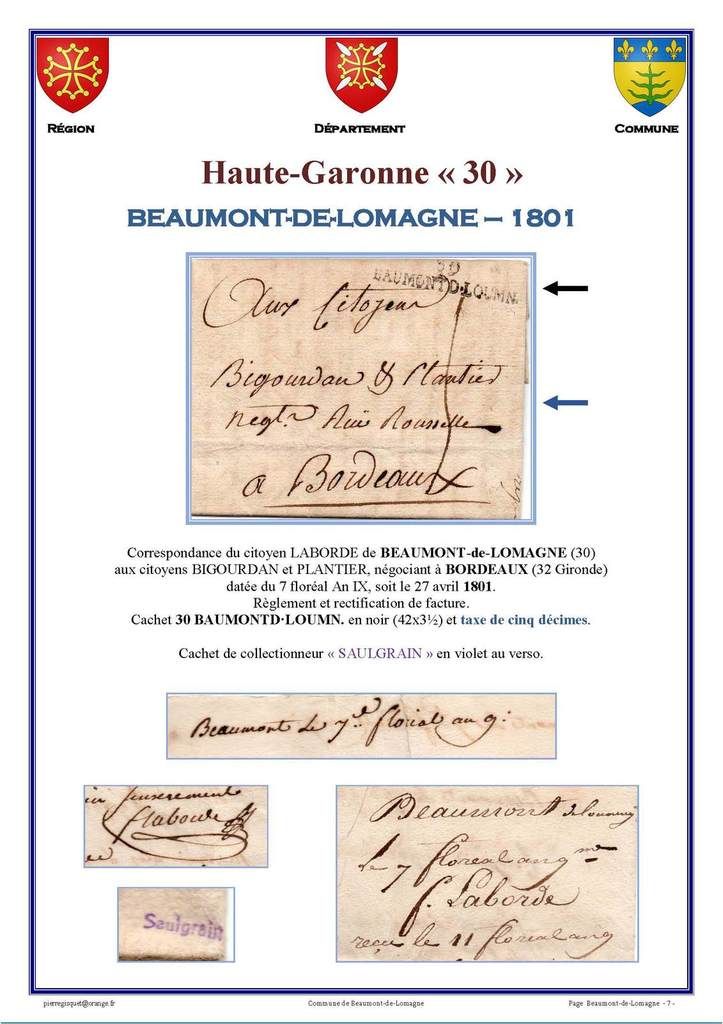 RÉGION
DÉPARTEMENT
COMMUNE
Haute-Garonne « 30 »
BEAUMONT-DE-LOMAGNE – 1801
30
BAUMONTD·LOUMN.
Aux Citoyens
Bigourdan & Plantier
negts. Rue Rousselle
a Bordeaux
Correspondance du citoyen LABORDE de BEAUMONT-de-LOMAGNE (30)
aux citoyens BIGOURDAN et PLANTIER, négociant à BORDEAUX (32 Gironde)
datée du 7 floréal An IX, soit le 27 avril 1801.
Règlement et rectification de facture.
Cachet 30 BAUMONTD·LOUMN. en noir (42x3½) et taxe de cinq décimes.
Cachet de collectionneur « SAULGRAIN » en violet au verso.
Beaumont Le 7 floreal an 9.
flaborde
Saulgrain
Beaumont
Le 7 floreal an 9
f. Laborde
reçu le 11 floreal an 9
pierregisquet@orange.fr
Commune de Beaumont-de-Lomagne
Page Beaumont-de-Lomagne - 7 -